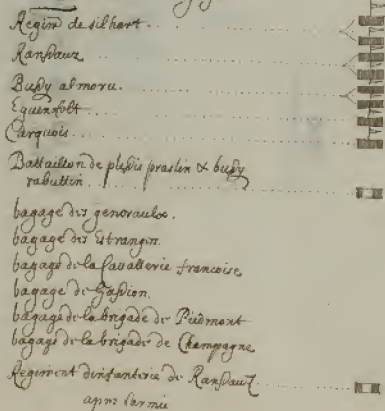 Regim de silhart
Ranßaux
Bußy almoru.
Equenfolt
Carquois
Battaillon de pleßis praslin & bußy
rabuttin
bagage des generaulx.
bagage des Estrangers
bagage de la Cavallerie francoise
bagage de Gaßion.
bagage de la brigade de Piedmont
bagage de la brigade de Champagne
Regiment dinfanterie de Ranßaux
apres larmee